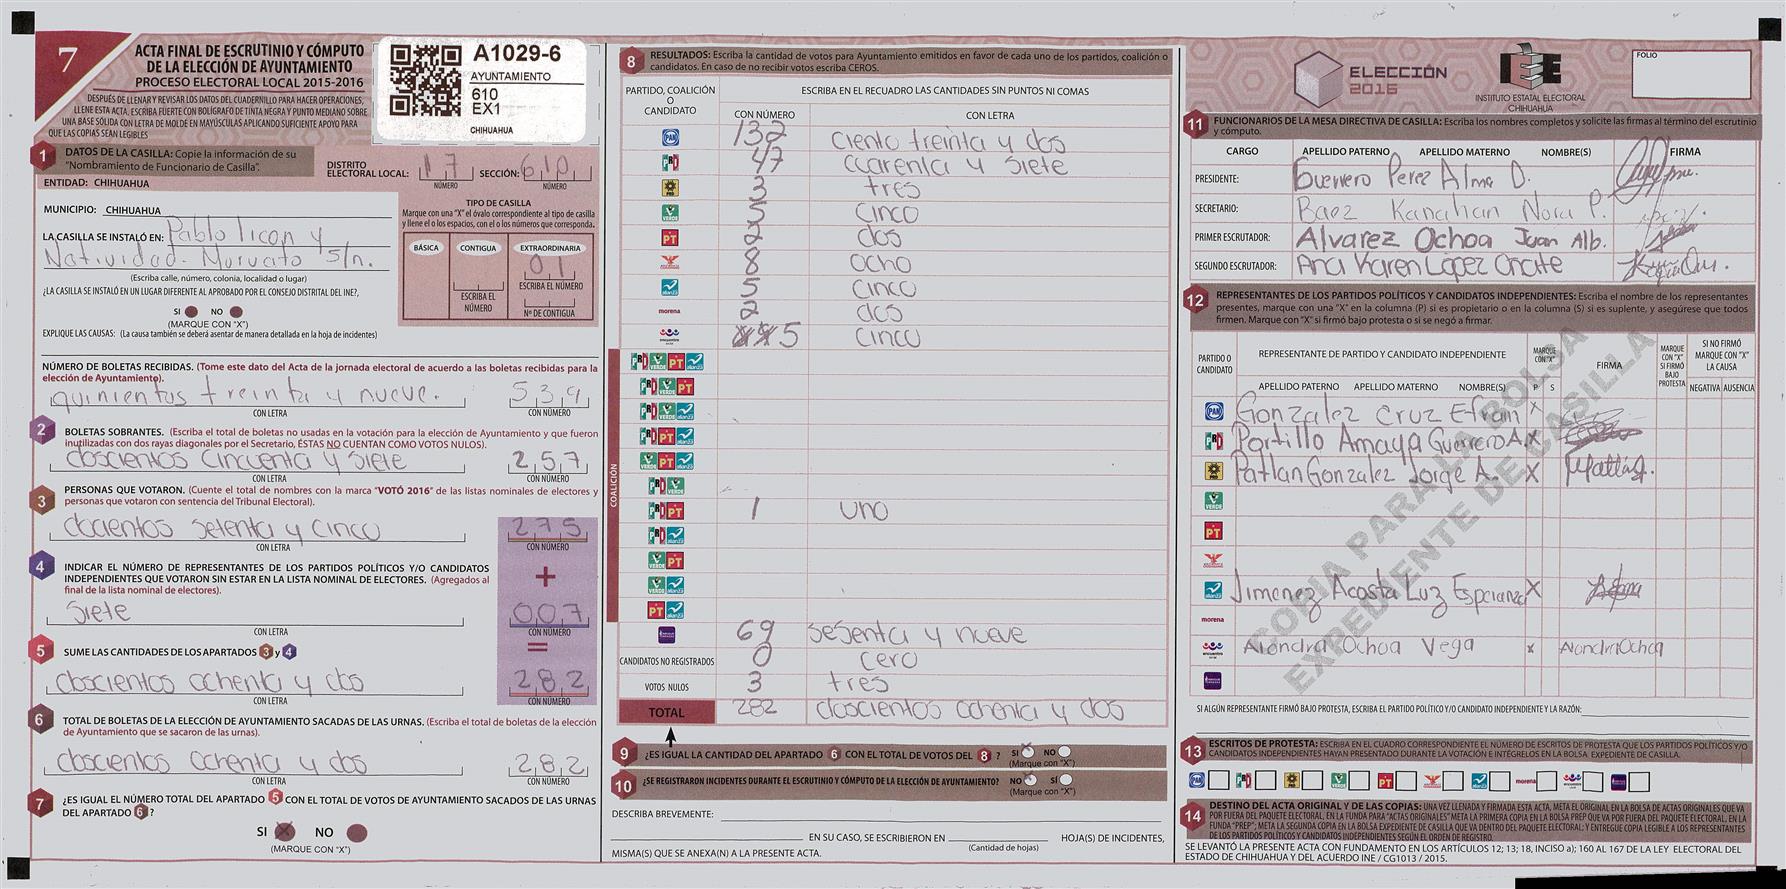 7
ACTA FINAL DE ESCRUTINIO Y CÓMPUTO
DE LA ELECCIÓN DE AYUNTAMIENTO
PROCESO ELECTORAL LOCAL 2015-2016
DESPUÉS DE LLENAR Y REVISAR LOS DATOS DEL CUADERNILLO PARA HACER OPERACIONES,
LLENE ESTA ACTA, ESCRIBA FUERTE CON BOLÍGRAFO DE TINTA NEGRA Y PUNTO MEDIANO SOBRE
UNA BASE SÓLIDA CON LETRA DE MOLDE EN MAYÚSCULAS APLICANDO SUFICIENTE APOYO PARA
QUE LAS COPIAS SEAN LEGIBLES
A1029-6
AYUNTAMIENTO
610
EX1
CHIHUAHUA
1 DATOS DE LA CASILLA: Copie la información de su
"Nombramiento de Funcionario de Casilla".
DISTRITO ELECTORAL LOCAL: 17 NÚMERO SECCIÓN: 610 NÚMERO
ENTIDAD: CHIHUAHUA
MUNICIPIO: CHIHUAHUA
LA CASILLA SE INSTALÓ EN: Pablo licon y
Natividad Morucito s/n.
(Escriba calle, número, colonia, localidad o lugar)
TIPO DE CASILLA
Marque con una "X" el óvalo correspondiente al tipo de casilla
y llene el o los espacios, con el o los números que corresponda.
BÁSICA CONTIGUA EXTRAORDINARIA
01
ESCRIBA EL NÚMERO ESCRIBA EL NÚMERO
Nº DE CONTIGUA
¿LA CASILLA SE INSTALÓ EN UN LUGAR DIFERENTE AL APROBADO POR EL CONSEJO DISTRITAL DEL INE?,
SI NO
(MARQUE CON "X")
EXPLIQUE LAS CAUSAS: (La causa también se deberá asentar de manera detallada en la hoja de incidentes)
NÚMERO DE BOLETAS RECIBIDAS. (Tome este dato del Acta de la jornada electoral de acuerdo a las boletas recibidas para la
elección de Ayuntamiento).
quinientos treinta y nueve. 539
CON LETRA CON NÚMERO
2 BOLETAS SOBRANTES. (Escriba el total de boletas no usadas en la votación para la elección de Ayuntamiento y que fueron
inutilizadas con dos rayas diagonales por el Secretario, ÉSTAS NO CUENTAN COMO VOTOS NULOS).
doscientos cincuenta y siete 257
CON LETRA CON NÚMERO
3 PERSONAS QUE VOTARON. (Cuente el total de nombres con la marca "VOTÓ 2016" de las listas nominales de electores y
personas que votaron con sentencia del Tribunal Electoral).
docientos setenta y cinco 275
CON LETRA CON NÚMERO
4 INDICAR EL NÚMERO DE REPRESENTANTES DE LOS PARTIDOS POLÍTICOS Y/O CANDIDATOS
INDEPENDIENTES QUE VOTARON SIN ESTAR EN LA LISTA NOMINAL DE ELECTORES. (Agregados al
final de la lista nominal de electores).
+
siete 007
CON LETRA CON NÚMERO
5 SUME LAS CANTIDADES DE LOS APARTADOS 3 y 4
=
doscientos ochenta y dos 282
CON LETRA CON NÚMERO
6 TOTAL DE BOLETAS DE LA ELECCIÓN DE AYUNTAMIENTO SACADAS DE LAS URNAS. (Escriba el total de boletas de la elección
de Ayuntamiento que se sacaron de las urnas).
doscientos ochenta y dos 282
CON LETRA CON NÚMERO
7 ¿ES IGUAL EL NÚMERO TOTAL DEL APARTADO 5 CON EL TOTAL DE VOTOS DE AYUNTAMIENTO SACADOS DE LAS URNAS
DEL APARTADO 6?
SI X NO
(MARQUE CON "X")
8 RESULTADOS: Escriba la cantidad de votos para Ayuntamiento emitidos en favor de cada uno de los partidos, coalición o
candidatos. En caso de no recibir votos escriba CEROS.
PARTIDO, COALICIÓN O CANDIDATO
ESCRIBA EN EL RECUADRO LAS CANTIDADES SIN PUNTOS NI COMAS
CON NÚMERO CON LETRA
PAN 132 ciento treinta y dos
PRI 47 cuarenta y siete
PRD 3 tres
VERDE 5 cinco
PT 2 dos
8 ocho
alianza 5 cinco
morena 2 dos
encuentro social 5 cinco
COALICIÓN
PRI VERDE PT alianza
PRI VERDE PT
PRI VERDE alianza
PRI PT alianza
VERDE PT alianza
PRI VERDE
PRI PT 1 uno
PRI alianza
VERDE PT
VERDE alianza
PT alianza
69 sesenta y nueve
CANDIDATOS NO REGISTRADOS 0 cero
VOTOS NULOS 3 tres
TOTAL 282 doscientos ochenta y dos
9 ¿ES IGUAL LA CANTIDAD DEL APARTADO 6 CON EL TOTAL DE VOTOS DEL 8 ? SI X NO
(Marque con "X")
10 ¿SE REGISTRARON INCIDENTES DURANTE EL ESCRUTINIO Y CÓMPUTO DE LA ELECCIÓN DE AYUNTAMIENTO? NO X SÍ
(Marque con "X")
DESCRIBA BREVEMENTE:
EN SU CASO, SE ESCRIBIERON EN HOJA(S) DE INCIDENTES,
(Cantidad de hojas)
MISMA(S) QUE SE ANEXA(N) A LA PRESENTE ACTA.
ELECCIÓN
2016
IEE
INSTITUTO ESTATAL ELECTORAL
CHIHUAHUA
FOLIO
11 FUNCIONARIOS DE LA MESA DIRECTIVA DE CASILLA: Escriba los nombres completos y solicite las firmas al término del escrutinio
y cómputo.
CARGO APELLIDO PATERNO APELLIDO MATERNO NOMBRE(S) FIRMA
PRESIDENTE: Guerrero Perez Alma D.
SECRETARIO: Baez Kanahan Nora P.
PRIMER ESCRUTADOR: Alvarez Ochoa Juan Alb.
SEGUNDO ESCRUTADOR: Ana Karen López Oñate
12 REPRESENTANTES DE LOS PARTIDOS POLÍTICOS Y CANDIDATOS INDEPENDIENTES: Escriba el nombre de los representantes
presentes, marque una "X" en la columna (P) si es propietario o en la columna (S) si es suplente, y asegúrese que todos
firmen. Marque con "X" si firmó bajo protesta o si se negó a firmar.
PARTIDO O CANDIDATO
REPRESENTANTE DE PARTIDO Y CANDIDATO INDEPENDIENTE
MARQUE CON "X"
FIRMA
MARQUE CON "X" SI FIRMÓ BAJO PROTESTA
SI NO FIRMÓ MARQUE CON "X" LA CAUSA
APELLIDO PATERNO APELLIDO MATERNO NOMBRE(S) P S NEGATIVA AUSENCIA
PAN Gonzalez Cruz Efrain X
PRI Portillo Amaya Guerrero A. X
PRD Patlan Gonzalez Jorge A. X
VERDE
PT
alianza Jimenez Acosta Luz Esperanza X
morena
encuentro social Alondra Ochoa Vega x Alondra Ochoa
COPIA PARA LA BOLSA
EXPEDIENTE DE CASILLA
SI ALGÚN REPRESENTANTE FIRMÓ BAJO PROTESTA, ESCRIBA EL PARTIDO POLÍTICO Y/O CANDIDATO INDEPENDIENTE Y LA RAZÓN:
13 ESCRITOS DE PROTESTA: ESCRIBA EN EL CUADRO CORRESPONDIENTE EL NÚMERO DE ESCRITOS DE PROTESTA QUE LOS PARTIDOS POLÍTICOS Y/O
CANDIDATOS INDEPENDIENTES HAYAN PRESENTADO DURANTE LA VOTACIÓN E INTÉGRELOS EN LA BOLSA. EXPEDIENTE DE CASILLA.
PAN PRI PRD VERDE PT alianza morena
14 DESTINO DEL ACTA ORIGINAL Y DE LAS COPIAS: UNA VEZ LLENADA Y FIRMADA ESTA ACTA, META EL ORIGINAL EN LA BOLSA DE ACTAS ORIGINALES QUE VA
POR FUERA DEL PAQUETE ELECTORAL, EN LA FUNDA PARA "ACTAS ORIGINALES" META LA PRIMERA COPIA EN LA BOLSA PREP QUE VA POR FUERA DEL PAQUETE ELECTORAL, EN LA
FUNDA "PREP"; META LA SEGUNDA COPIA EN LA BOLSA EXPEDIENTE DE CASILLA QUE VA DENTRO DEL PAQUETE ELECTORAL; Y ENTREGUE COPIA LEGIBLE A LOS REPRESENTANTES
DE LOS PARTIDOS POLÍTICOS Y CANDIDATOS INDEPENDIENTES SEGÚN EL ORDEN DE REGISTRO.
SE LEVANTÓ LA PRESENTE ACTA CON FUNDAMENTO EN LOS ARTÍCULOS 12; 13; 18, INCISO a); 160 AL 167 DE LA LEY ELECTORAL DEL
ESTADO DE CHIHUAHUA Y DEL ACUERDO INE / CG1013 / 2015.